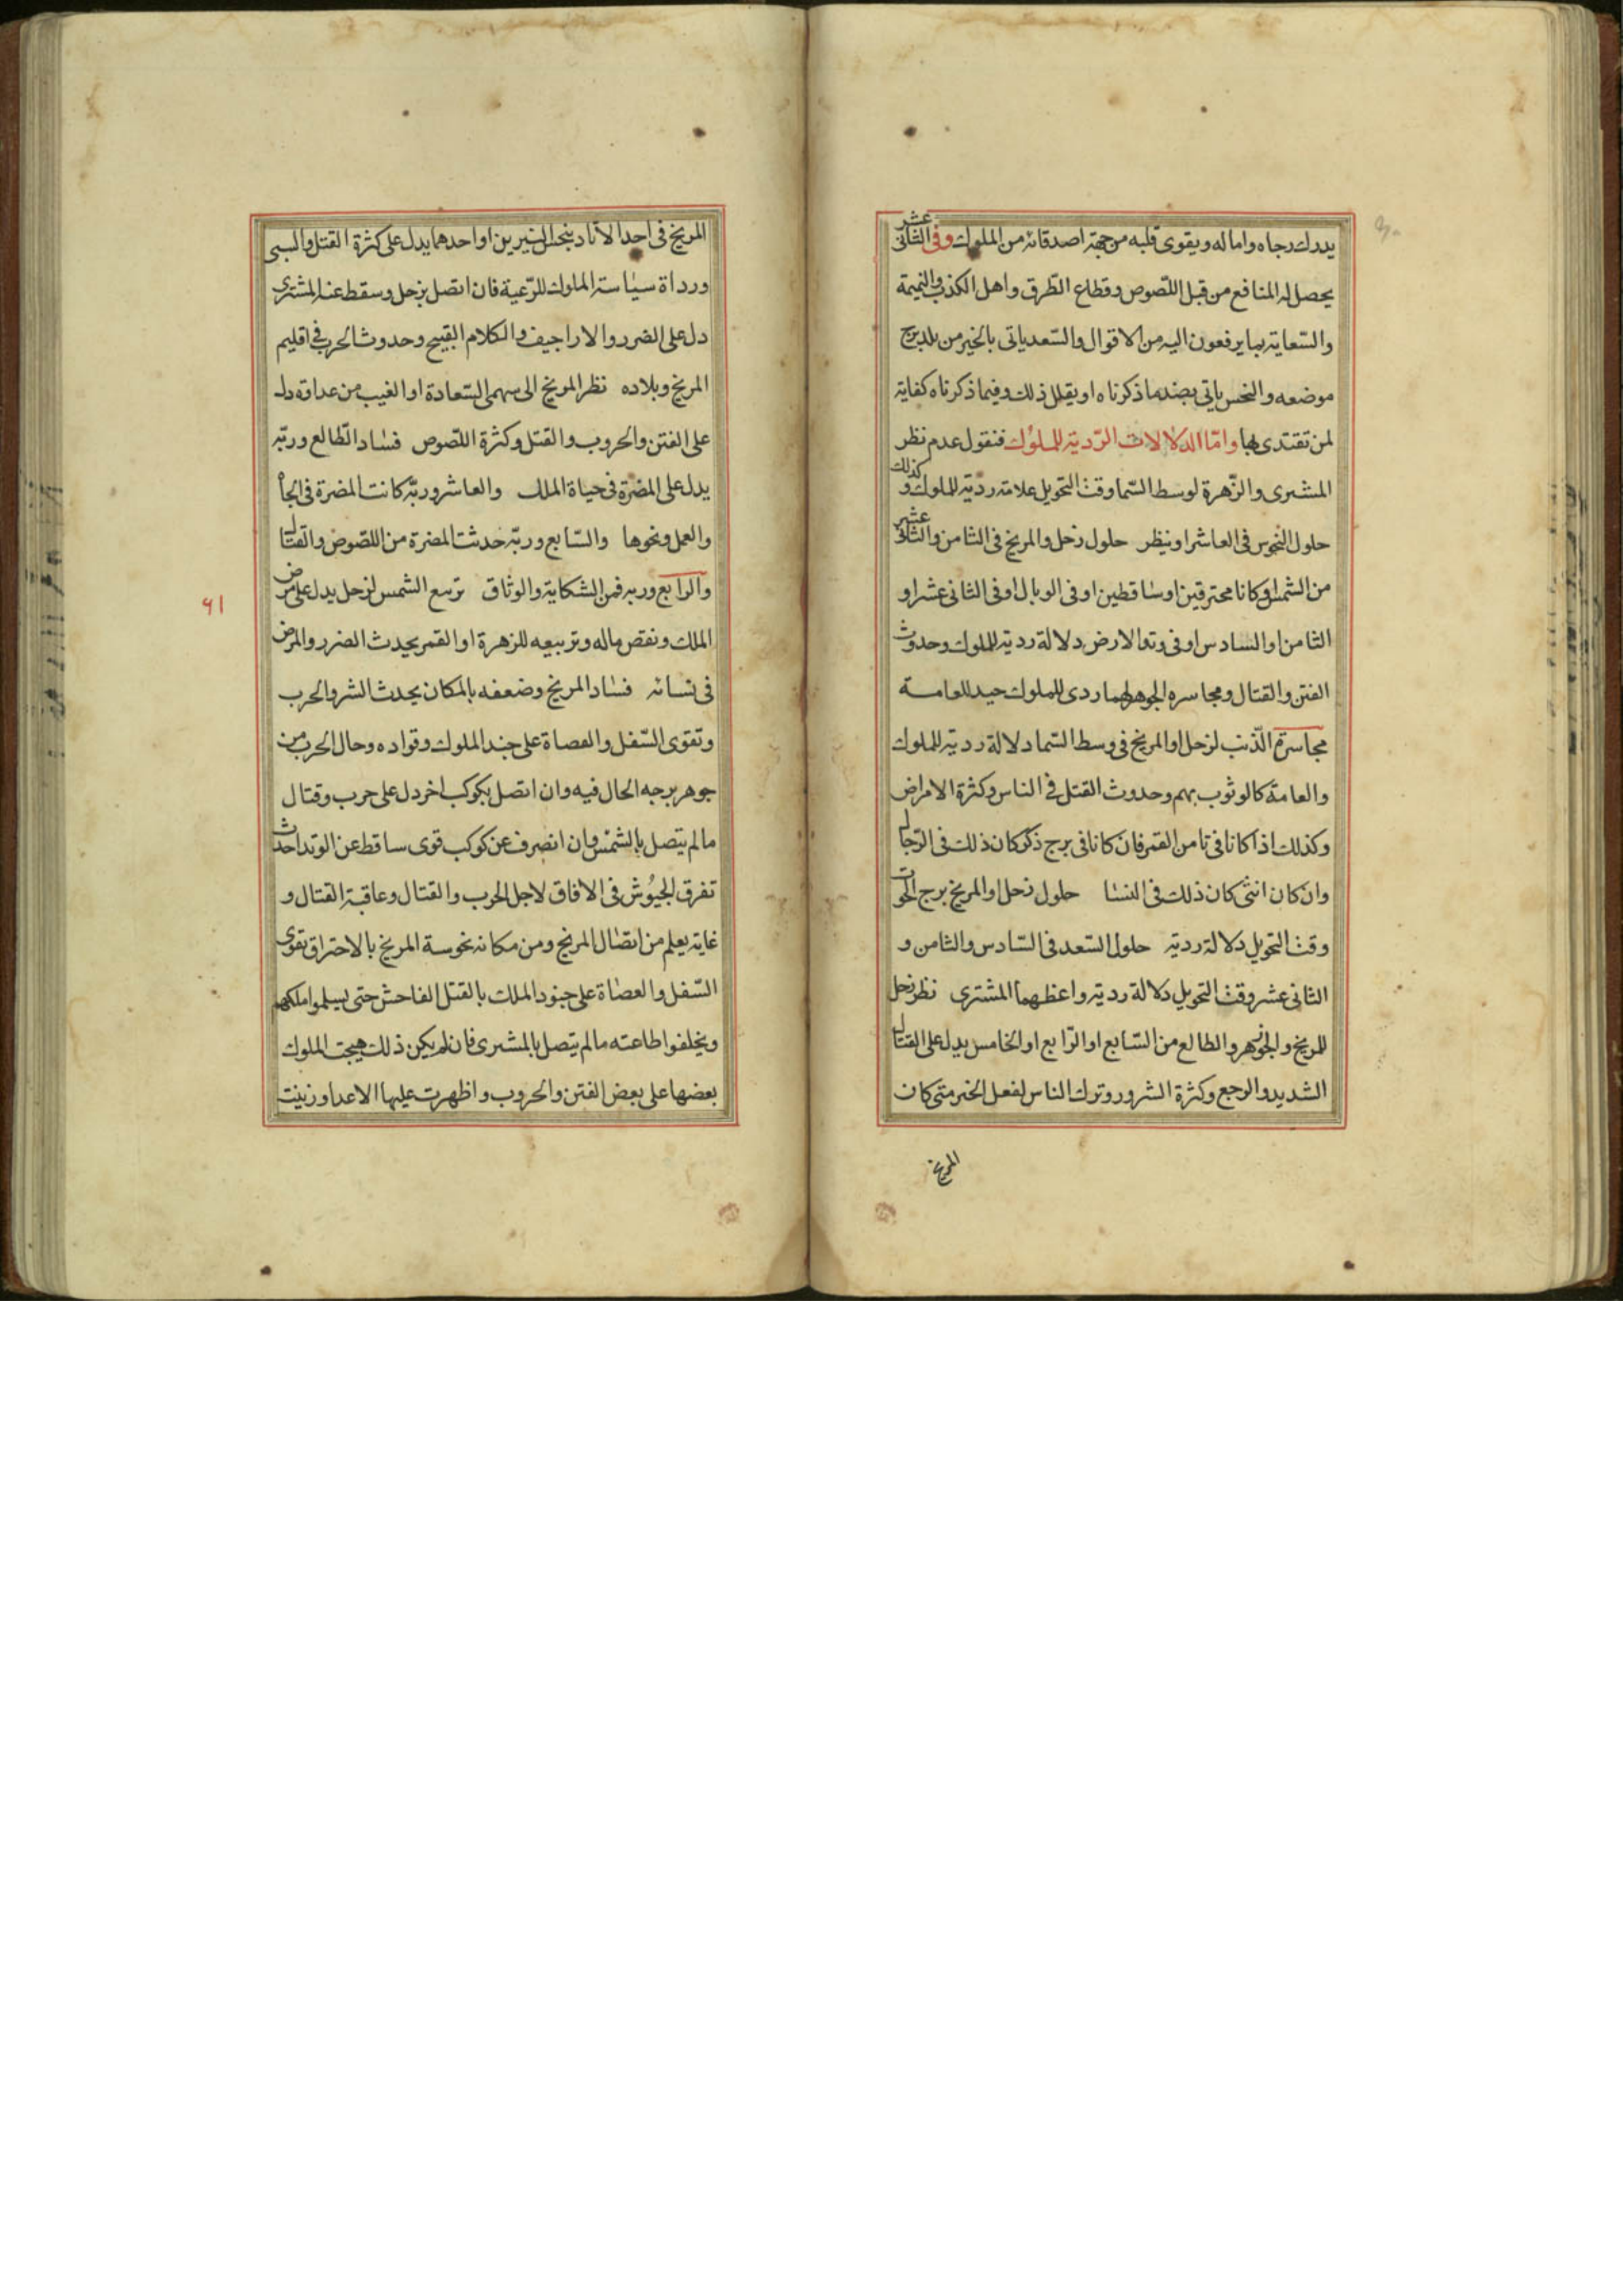 يدرك رجاه واماله ويقوى قلبه من جهة اصدقائه من الملوك وفى الثانى عشر
يحصل له المنافع من قبل اللصوص وقطاع الطرق واهل الكذب والنميمة
والسعاية بما يرفعون اليه من الاقوال والسعد ياتى بالخير من بلد برج
موضعه والنحس ياتى بضد ما ذكرناه او يقلل ذلك وفيما ذكرناه كفاية
لمن تقتدى بها واما الدلالات الردية للملوك فنقول عدم نظر
المشترى والزهرة لوسط السما وقت التحويل علامة ردية للملوك وكذلك
حلول النحوس فى العاشر او نيظر حلول زحل والمريخ فى الثامن والثانى عشر
من الشمس او كانا محترقين او ساقطين او فى الوبال او فى الثانى عشر او
الثامن او السادس او فى وتد الارض دلالة ردية للملوك وحدوث
الفتن والقتال ومجاسره الجوهر لهما ردى للملوك جيد للعامة
مجاسرة الذنب لزحل او المريخ فى وسط السما دلالة ردية للملوك
والعامة كالوثوب بهم وحدوث القتل فى الناس وكثرة الامراض
وكذلك اذا كانا فى ثامن القمر فان كانا فى برج ذكر كان ذلك فى الرجال
وان كان انثى كان ذلك فى النسا حلول زحل او المريخ برج الحوت
وقت التحويل دلالة ردية حلول السعد فى السادس والثامن و
الثانى عشر وقت التحويل دلالة ردية واعظهما المشترى نظر زحل
للمريخ والجوزهر والطالع من السابع او الرابع او الخامس يدل على القتال
الشديد والوجع وكثرة الشرور وترك الناس لفعل الخير متى كان
المريخ
المريخ فى احد الاوتاد ينحس النيرين او احدهما يدل على كثرة القتل والسبى
ورداة سياسة الملوك للرعية فان اتصل بزحل وسقط عنه المشترى
دل على الضرر والاراجيف والكلام القبيح وحدوث الحرب فى اقليم
المريخ وبلاده نظر المريخ الى سهمى السعادة او الغيب من عداوة دل
على الفتن والحروب والقتل وكثرة اللصوص فساد الطالع وربه
يدل على المضرة فى حياة الملك والعاشر وربه كانت المضرة فى الجاه
والعمل ونحوها والسابع وربه حدثت المضرة من اللصوص والقتال
والرابع وربه فمن الشكاية والوثاق تربيع الشمس لزحل يدل على مرض
الملك ونقص ماله وتربيعه للزهرة او القمر يحدث الضرر والمرض
فى نسائه فساد المريخ وضعفه بالمكان يحدث الشر والحرب
وتقوى السفل والعصاة على جند الملوك وقواده وحال الحرب من
جوهر برجه الحال فيه وان اتصل بكوكب اخر دل على حرب وقتال
مالم يتصل بالشمس وان انصرف عن كوكب قوى ساقط عن الوتد احدث
تفرق الجيوش فى الافاق لاجل الحرب والقتال وعاقبة القتال و
غايته يعلم من اتصال المريخ ومن مكانه نحوسة المريخ بالاحتراق تقوى
السفل والعصاة على جنود الملك بالقتل الفاحش حتى يسلموا ملكهم
ويخلفوا طاعته مالم يتصل بالمشترى فان لم يكن ذلك هيجت الملوك
بعضها على بعض الفتن والحروب واظهرت عليها الاعدا وزينت
٩١